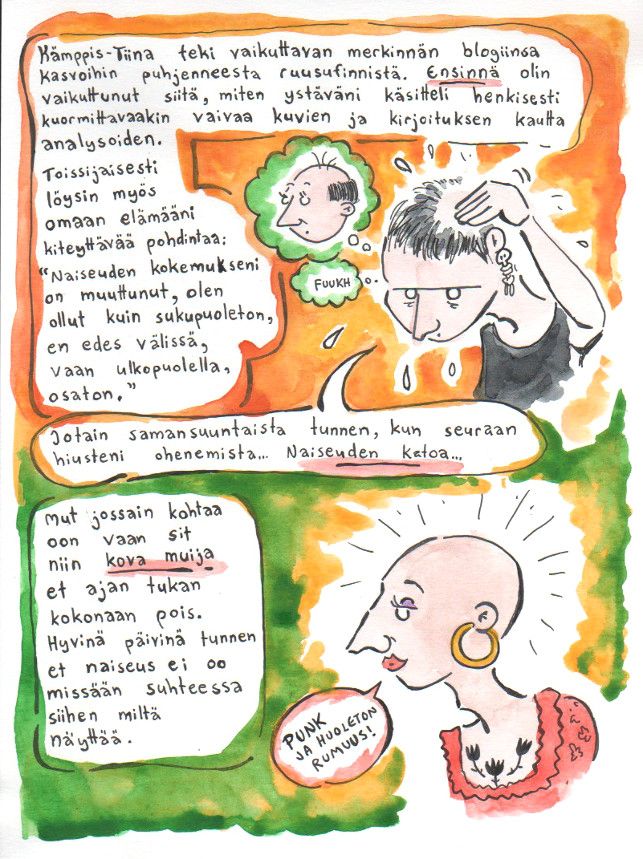 Kämppis-Tiina teki vaikuttavan merkinnän blogiinsa
kasvoihin puhjenneesta ruusufinnistä. Ensinnä olin
vaikuttunut siitä, miten ystäväni käsitteli henkisesti
kuormittavaakin vaivaa kuvien ja kirjoituksen kautta
analysoiden.
Toissijaisesti
löysin myös
omaan elämääni
kiteyttävää pohdintaa:
"Naiseuden kokemukseni
on muuttunut, olen
ollut kuin sukupuoleton,
en edes välissä,
vaan ulkopuolella,
osaton."
FUUKH
Jotain samansuuntaista tunnen, kun seuraan
hiusteni ohenemista... Naiseuden katoa...
Mut jossain kohtaa
oon vaan sit
niin kova muija
et ajan tukan
kokonaan pois.
Hyvinä päivinä tunnen
et naiseus ei oo
missään suhteessa
siihen miltä
näyttää.
PUNK
JA HUOLETON
RUMUUS!